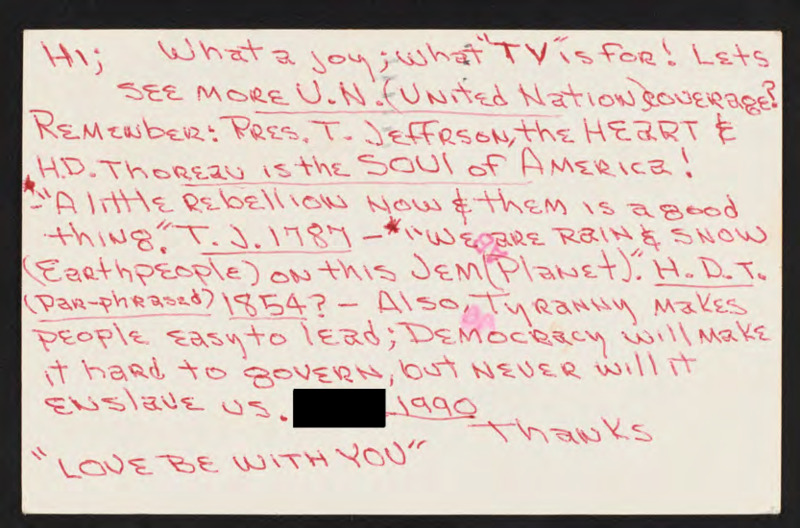 Hi; What a joy; what "TV" is for! Lets
SEE MORE U.N. (United Nation) coverage?
Remember: Pres. T. Jeffrson, the HEART &
H.D. Thoreau is the SOUl of America!
*"A little Rebellion now & them is a good
thing." T.J. 1787 - *"We are RAIN & SNOW
(Earthpeople) on this Jem (Planet)." H.D.T.
(par-phrased) 1854? - Also, Tyranny makes
people easy to lead; Democracy will make
it hard to govern, but never will it
enslave us. 1990
Thanks
"LOVE BE WITH YOU"